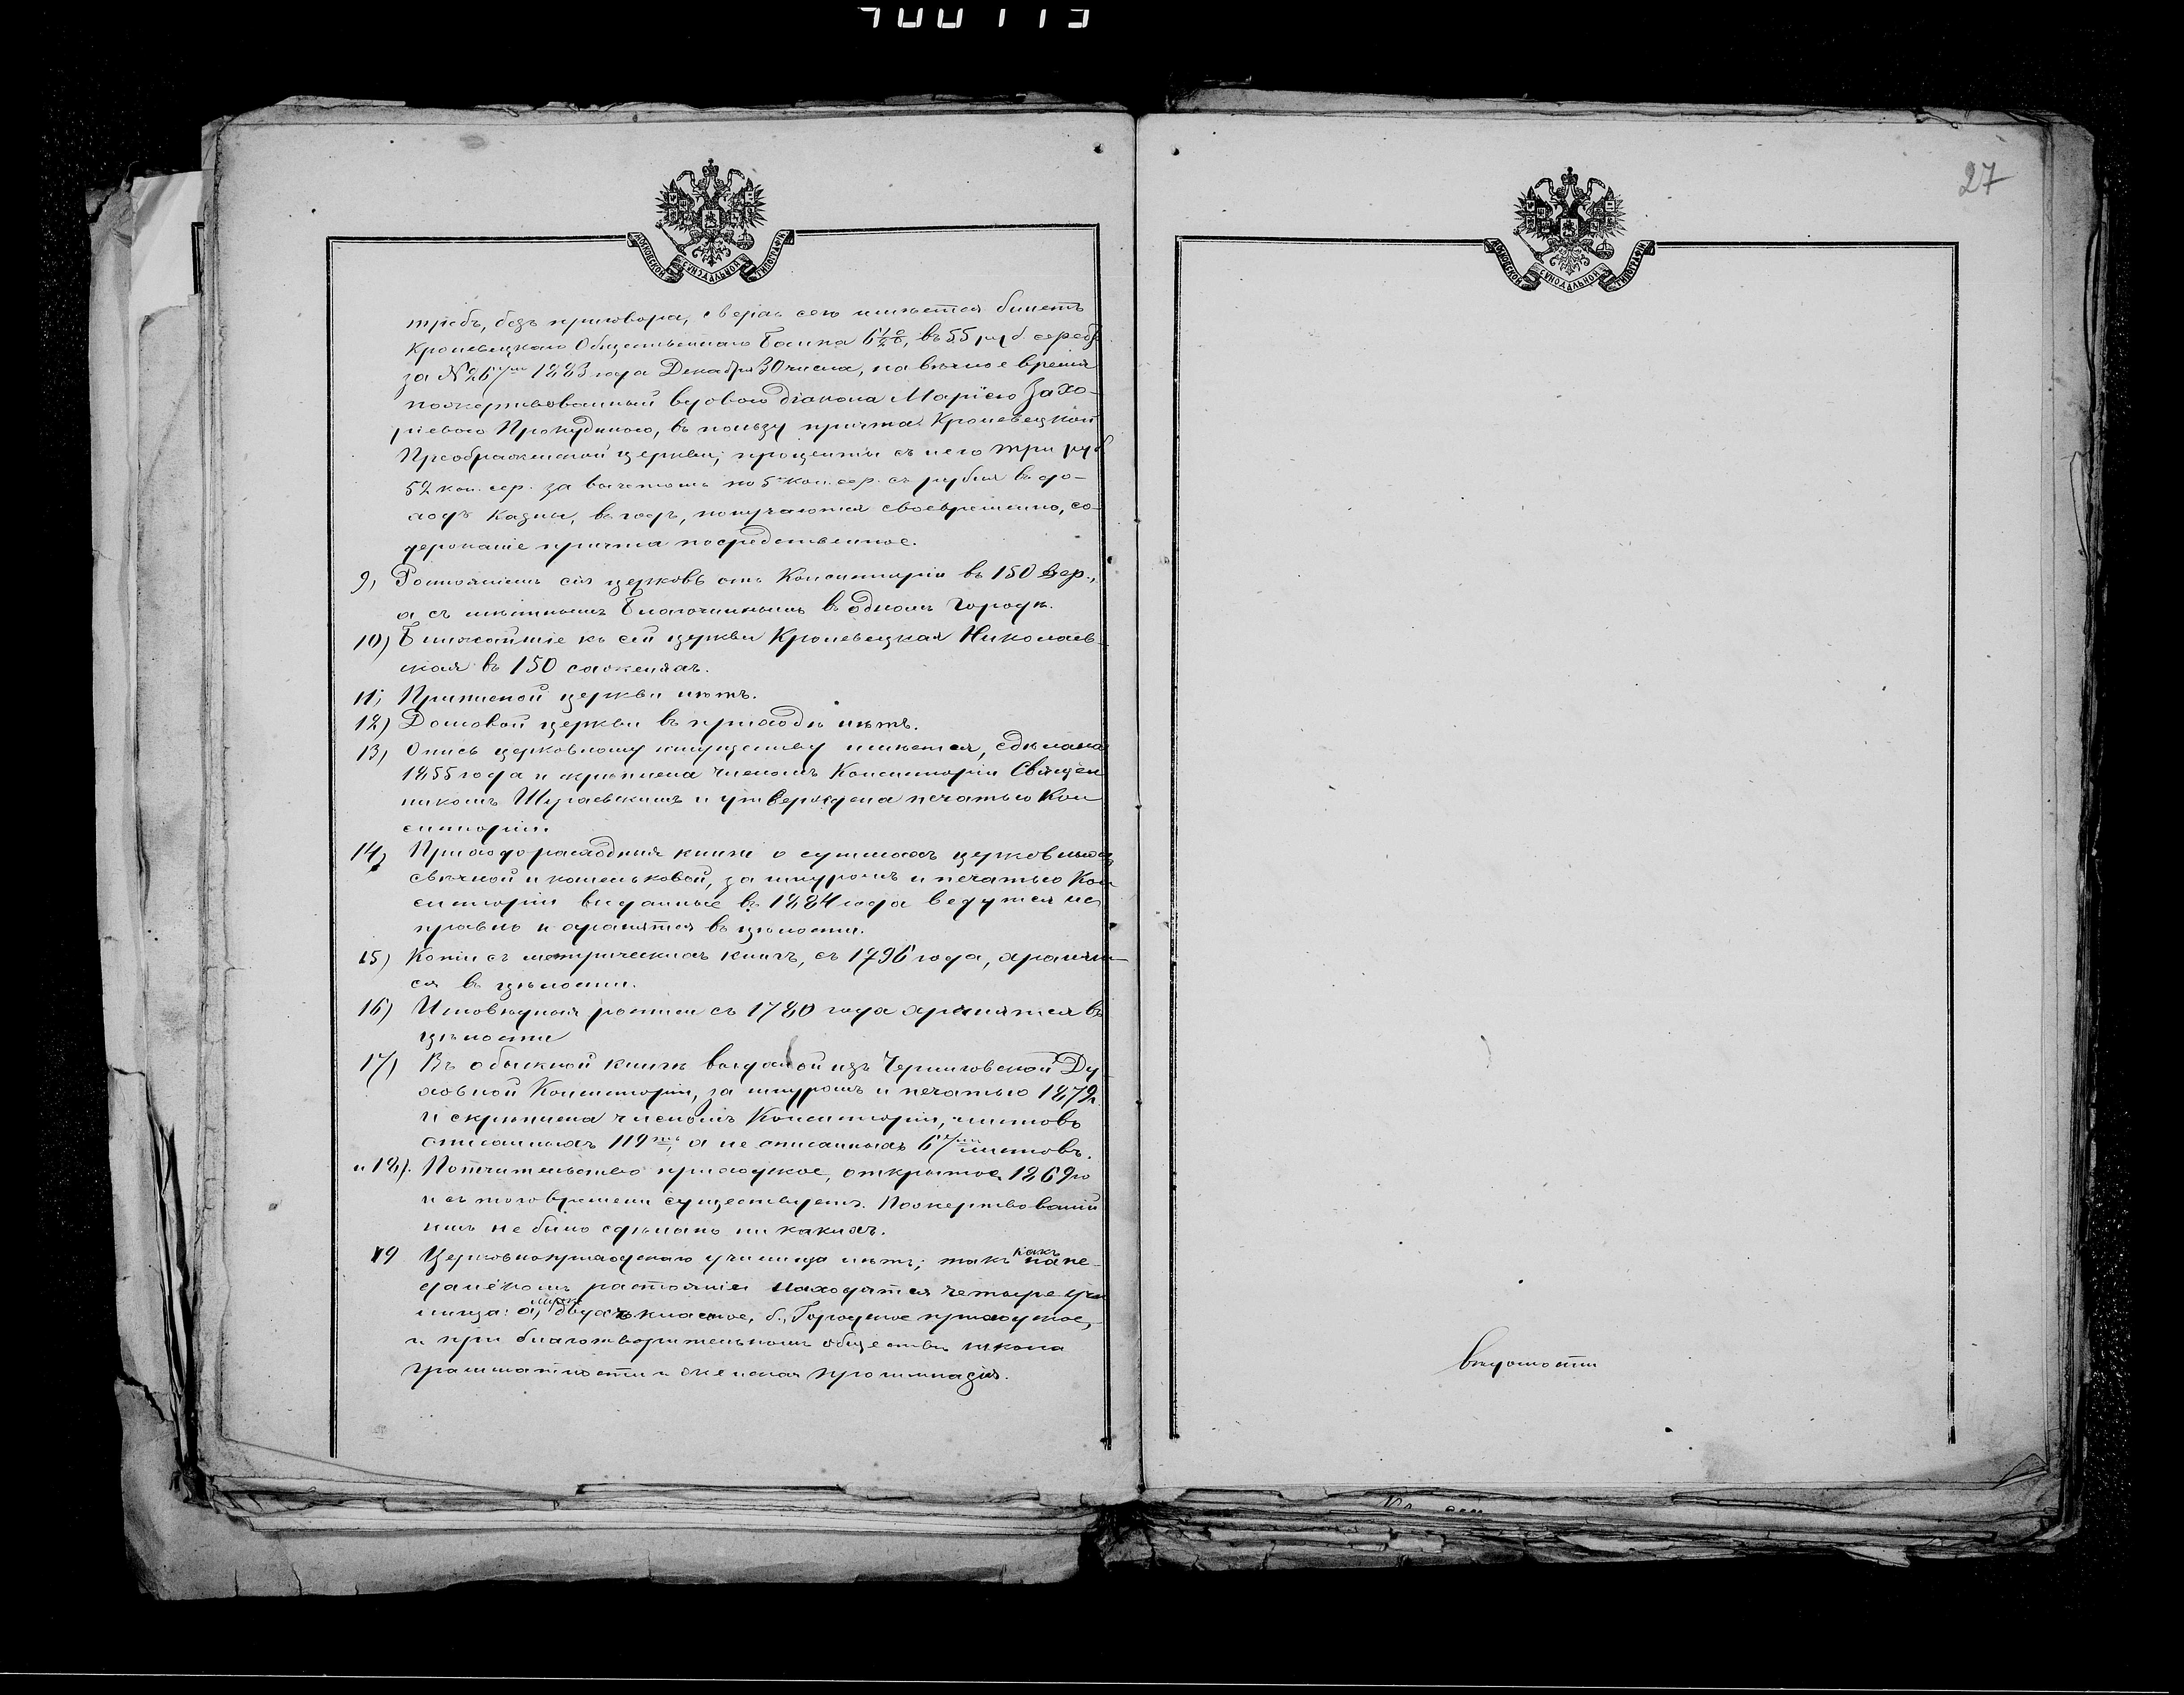 МОСКОВСКОЙ СѴНОДАЛЬНОЙ ТИПОГРАФІИ
требъ, безъ приговора, сверхъ сего имѣется билетъ
Кролевецкаго Общественнаго Банка 6½%, въ 55 руб. серебр.
за № 26 1883 года Декабря 30 числа, на вѣчное время
пожертвованный вдовою діакона Маріею Заха-
ріевою Прокудиною, въ пользу причта Кролевецкой
Преображенской церкви; проценты съ него три руб
52 коп. сер. за вычетомъ по 5 коп. сер. съ рубля въ до-
ходъ казны, въ годъ, получаются своевременно, со-
держаніе причта посредственное.
9, Растояніемъ сія церковь отъ Консисторіи въ 150 вер.,
а съ мѣстнымъ Благочиннымъ въ одномъ городѣ.
10) Ближайшіе къ сей церкви Кролевецкая Николаев-
ская въ 150 саженяхъ.
11; Приписной церкви нѣтъ.
12) Домовой церкви въ приходѣ нѣтъ.
13, Опись церковному имуществу имѣется, сдѣлана
1855 года и скрѣплена членомъ Консисторіи Священ
никомъ и утверждена печатью Кон
систоріи.
14, Приходорасходныя книги о суммахъ церковныхъ
свѣчной и кошельковой, за шнуромъ и печатью Кон
систоріи выданные въ 1884 года ведутся ис
правно и хранятся въ цѣлости.
15) Копіи съ метрическихъ книгъ, съ 1796 года, хранят-
ся въ цѣлости.
16) Исповѣдныя росписи съ 1780 года хранятся въ
цѣлости
17) Въ обыскной книгѣ выданой изъ Черниговской Ду
ховной Консисторіи, за шнуромъ и печатью 1879г.
и скрѣплена членомъ Консисторіи, листовъ
списанныхъ 119, а не списанныхъ листовъ.
и 18). Попечительство приходское, открытое 1869го
и съ того времени существуетъ. Пожертвованій
имъ не было сдѣлано ни какихъ.
19 Церковноприходскаго училища нѣтъ; такъ какъ на не-
далёкомъ растояніи находятся четыре учи
лища: а, двухъ класное, б., Городское приходское,
и при благотворительномъ обществѣ школа
грамматности и женская прогимназія.
МОСКОВСКОЙ СѴНОДАЛЬНОЙ ТИПОГРАФІИ
27
вѣдомости